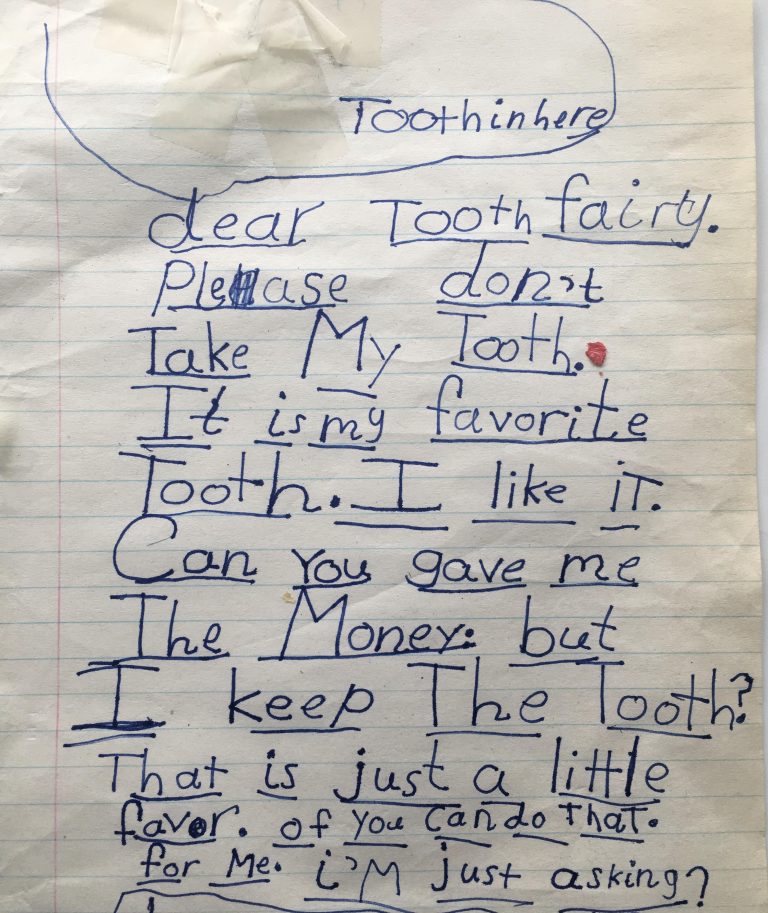 Tooth in here
dear Tooth fairy.
Please don't
Take My Tooth.
It is my favorite
Tooth. I like iT.
Can You gave me
The Money: but
I keep The Tooth?
That is just a little
favor. of you can do That.
for Me. i'M just asking?